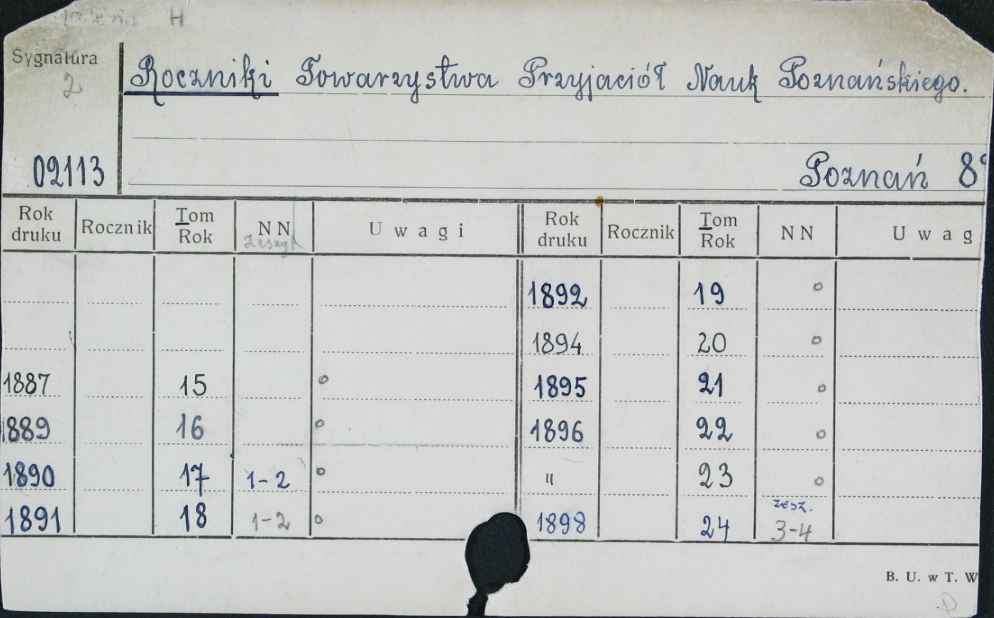 H
Sygnatura
2
Roczniki Towarzystwa Przyjaciół Nauk Poznańskiego.
02113
Poznań 8°
Rok druku Rocznik Tom Rok NN zeszyt Uwagi Rok druku Rocznik Tom Rok NN Uwag
1892 19 o
1894 20 o
1887 15 o 1895 21 o
1889 16 o 1896 22 o
1890 17 1-2 o " 23 o
1891 18 1-2 o 1898 24 zesz. 3-4
B. U. w T. W